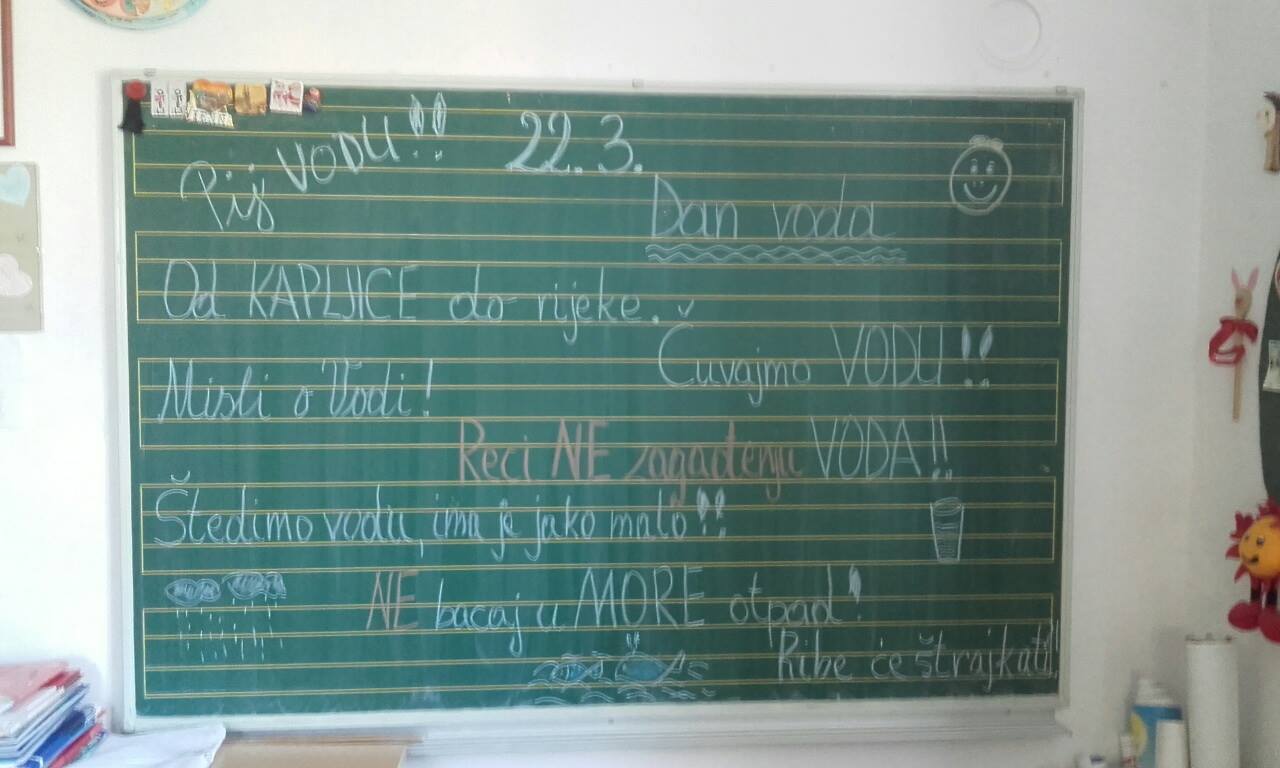 Pij VODU!! 22.3.
Dan voda
Od KAPLJICE do rijeke.
Čuvajmo VODU!!
Misli o Vodi!
Reci NE zagađenju VODA!!
Štedimo vodu, ima je jako malo!!
NE bacaj u MORE otpad!
Ribe će štrajkati!!